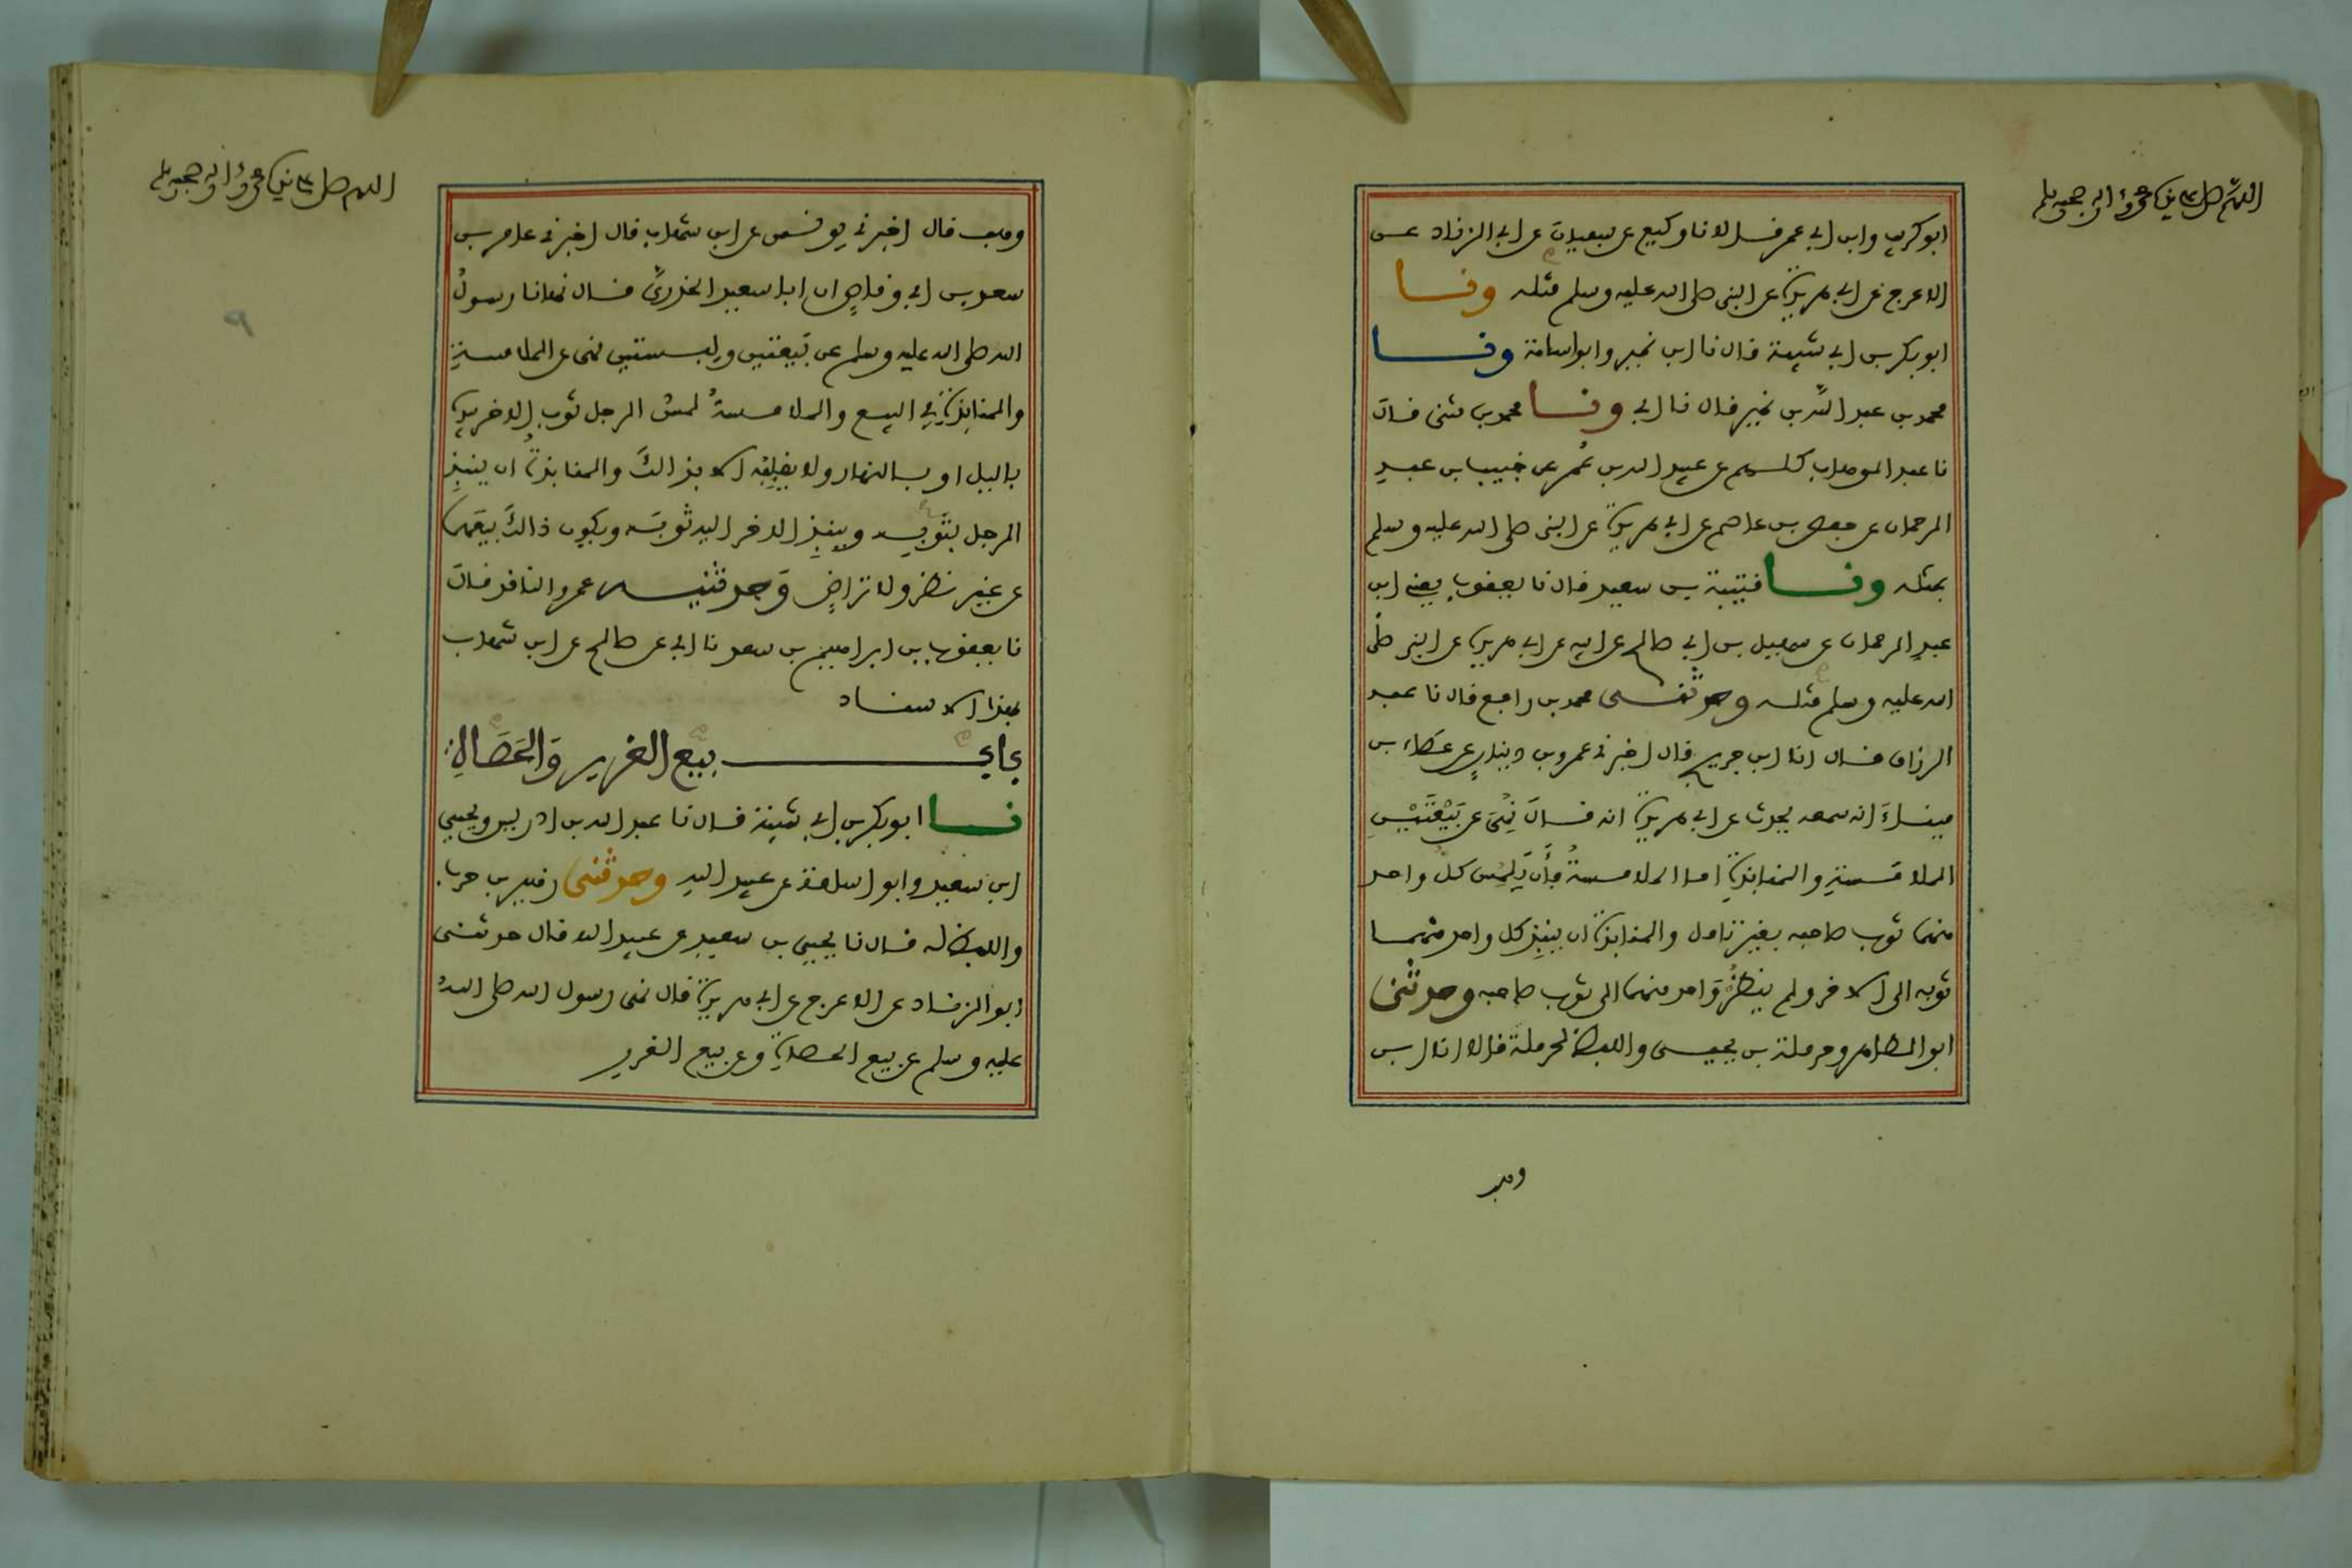 اللهم صل على سيدنا محمد وآله وصحبه وسلم
ابو كريب وابن ابي عمر قالا نا وكيع عن سفيان عن ابي الزناد عن
الاعرج عن ابي هريرة عن النبي صلى الله عليه وسلم مثله ونا
ابو بكر بن ابي شيبة قال نا ابن نمير وابو اسامة ونا
محمد بن عبد الله بن نمير قال نا ابي ونا محمد بن مثنى قال
نا عبد الوهاب كلهم عن عبيد الله بن عمر عن خبيب بن عبد
الرحمان عن حفص بن عاصم عن ابي هريرة عن النبي صلى الله عليه وسلم
بمثله ونا قتيبة بن سعيد قال نا يعقوب يعني ابن
عبد الرحمان عن سهيل بن ابي صالح عن ابيه عن ابي هريرة عن النبي صلى
الله عليه وسلم مثله وحدثني محمد بن رافع قال نا عبد
الرزاق قال انا ابن جريج قال اخبرني عمرو بن دينار عن عطاء بن
ميناء انه سمعه يحدث عن ابي هريرة انه قال نهي عن بيعتين
الملامسة والمنابذة اما الملامسة فأن يلمس كل واحد
منهما ثوب صاحبه بغير تامل والمنابذة ان ينبذ كل واحد منهما
ثوبه الى الاخر ولم ينظر واحد منهما الى ثوب صاحبه وحدثني
ابو الطاهر وحرملة بن يحيى واللفظ لحرملة قالا انا ابن
وهب
اللهم صل على سيدنا محمد وآله وصحبه وسلم
٩
وهب قال اخبرني يونس عن ابن شهاب قال اخبرني عامر بن
سعد بن ابي وقاص ان ابا سعيد الخدري قال نهانا رسول
الله صلى الله عليه وسلم عن بيعتين ولبستين نهى عن الملامسة
والمنابذة في البيع والملامسة لمس الرجل ثوب الاخر بيده
بالليل او بالنهار ولا يقلبه الا بذالك والمنابذة ان ينبذ
الرجل بثوبه وينبذ الاخر اليه ثوبه ويكون ذالك بيعهما
عن غير نظر ولا تراض وحدثنيه عمرو الناقد قال
نا يعقوب بن ابراهيم بن سعد نا ابي عن صالح عن ابن شهاب
بهذا الاسناد
باب بيع الغرر والحصاة
نا ابو بكر بن ابي شيبة قال نا عبد الله بن ادريس ويحيى
ابن سعيد وابو اسامة عن عبيد الله وحدثني زهير بن حرب
واللفظ له قال نا يحيى بن سعيد عن عبيد الله قال حدثني
ابو الزناد عن الاعرج عن ابي هريرة قال نهى رسول الله صلى الله
عليه وسلم عن بيع الحصاة وعن بيع الغرر